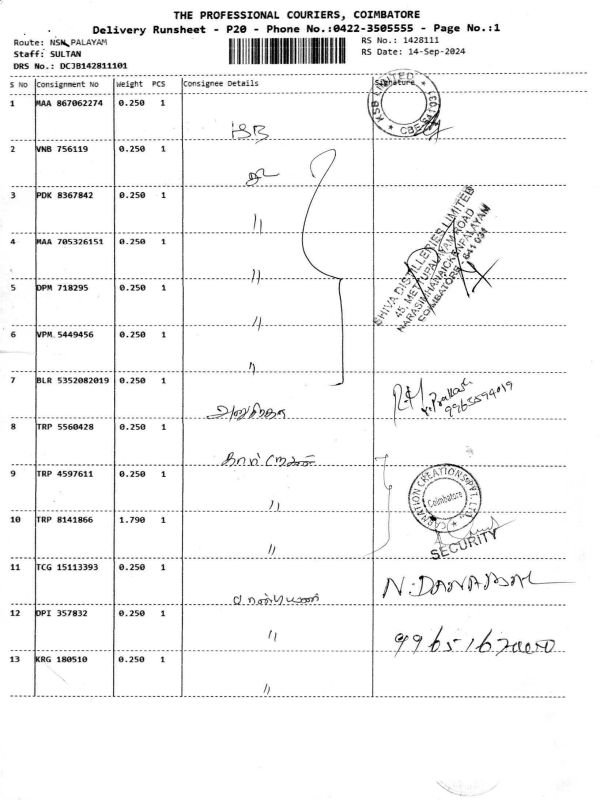 THE PROFESSIONAL COURIERS, COIMBATORE
Delivery Runsheet - P20 - Phone No.:0422-3505555 - Page No.:1
Route: NSN PALAYAM
Staff: SULTAN
DRS No.: DCJB142811101
RS No.: 1428111
RS Date: 14-Sep-2024
S No Consignment No Weight PCS Consignee Details Signature
1 MAA 867062274 0.250 1
KSB LIMITED
2 VNB 756119 0.250 1
3 PDK 8367842 0.250 1
〃
SHIVA DISTILLERIES LIMITED
45, METTUPALAYAM ROAD
NARASIMHANAICKENPALAYAM
COIMBATORE - 641 031
4 MAA 705326151 0.250 1
〃
5 DPM 718295 0.250 1
〃
6 VPM 5449456 0.250 1
〃
7 BLR 5352082019 0.250 1
8 TRP 5560428 0.250 1
9 TRP 4597611 0.250 1
〃
CARNATION CREATIONS PVT. LTD
Coimbatore
10 TRP 8141866 1.790 1
〃
SECURITY
11 TCG 15113393 0.250 1
12 DPI 357832 0.250 1
〃
13 KRG 180510 0.250 1
〃